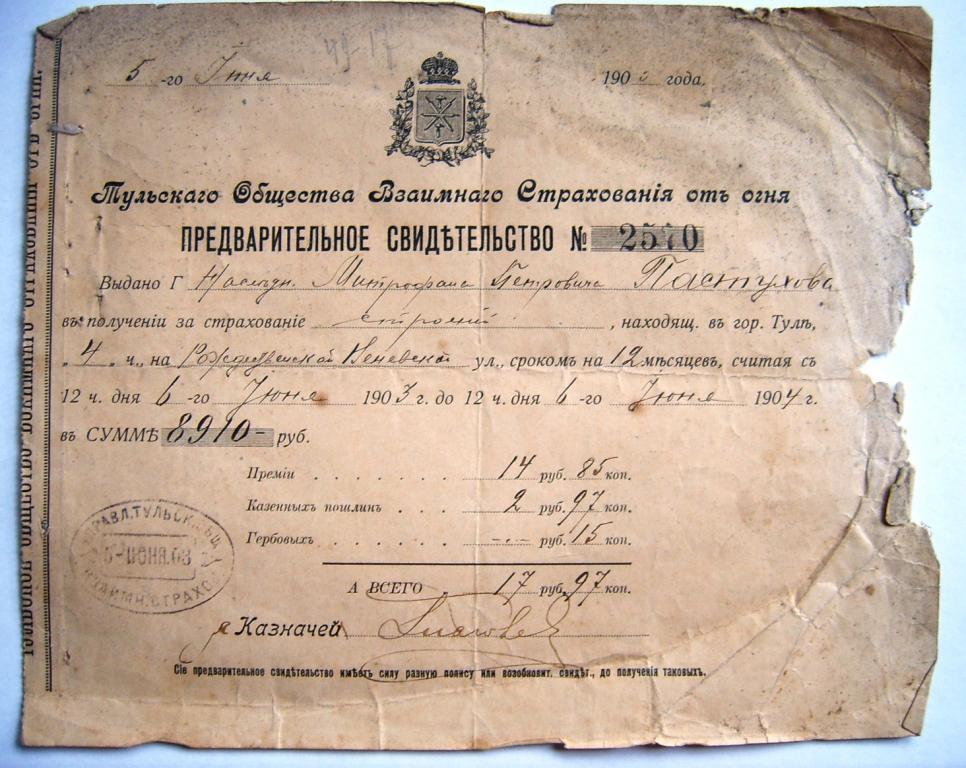 49-17
5 -го Июня 1903 года.
Тульскаго Общества Взаимнаго Страхованія отъ огня
ПРЕДВАРИТЕЛЬНОЕ СВИДѢТЕЛЬСТВО № 2570
Выдано Г Наслѣдн. Митрофана Петровича Пастухова
въ полученіи за страхованіе строеній , находящ. въ гор. Тулѣ,
„ 4 " ч., на Рождественской Веневской ул., срокомъ на 12 мѣсяцевъ, считая съ
12 ч. дня 6 -го Іюня 1903 г. до 12 ч. дня 6 -го Іюня 1904 г.
въ СУММѢ 8910- руб.
Преміи . . . . . . . 14 руб. 85 коп.
Казенныхъ пошлинъ . . . 2 руб. 97 коп.
Гербовыхъ . . . . . . -.- руб. 15 коп.
А ВСЕГО . 17 руб. 97 коп.
Казначей
Сіе предварительное свидѣтельство имѣетъ силу разную полису или возобновит. свидѣт., до полученія таковыхъ.
УПРАВЛ. ТУЛЬСК. ОБЩ.
5-ИЮНЯ.03
ВЗАИМН. СТРАХОВ.
ТУЛЬСКОЕ ОБЩЕСТВО ВЗАИМНАГО СТРАХОВАНІЯ ОТЪ ОГНЯ.